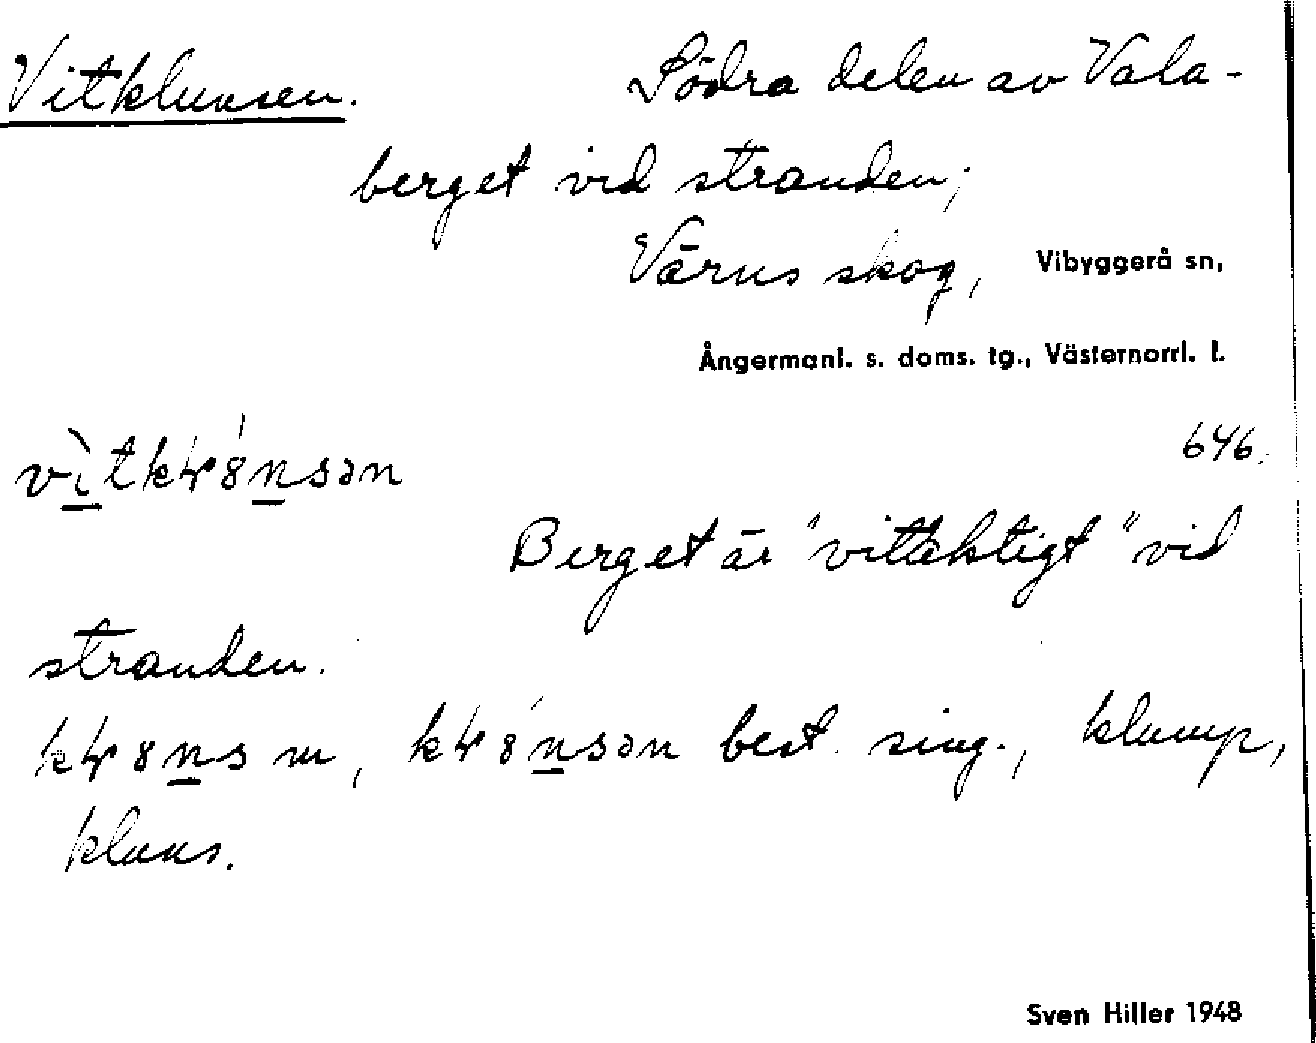 Vitklunsen. Södra delen av Vala-
berget vid stranden;
Värns skog, Vibyggerå sn,
Ångermanl. s. doms. tg., Västernorrl. l.
646.
Berget är "vitaktigt" vid
stranden.
m, best. sing., klump,
kluns.
Sven Hiller 1948